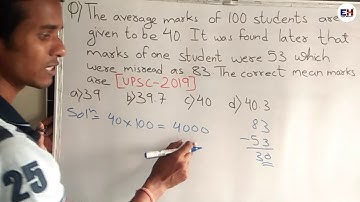 Q) The average marks of 100 students are
given to be 40. It was found later that
marks of one student were 53 which
were misread as 83. The correct mean marks
are [UPSC-2019]
a) 39 b) 39.7 c) 40 d) 40.3
Solⁿ= 40×100 = 4000
83
-53
30
25
EH